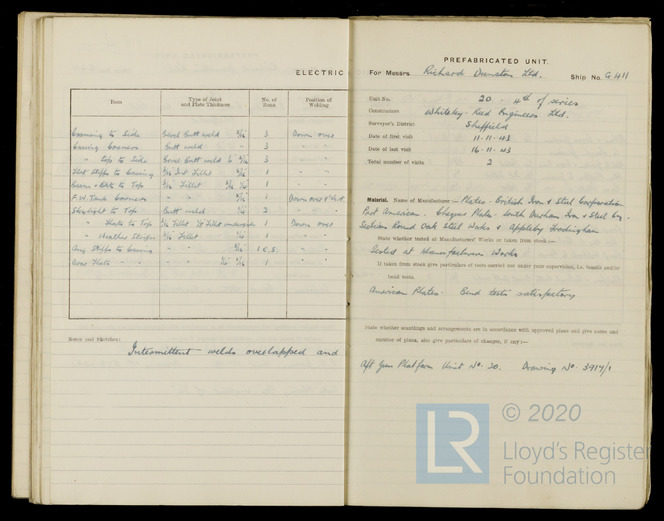 ELECTRIC
Item Type of Joint and Plate Thickness No. of Runs Position of Welding
Coaming to Side Bevel Butt weld 5/16 3 Down over
Casing Corners Butt weld " 3 " "
" top to Side 3 " "
Flat Stiffs to Casing 1 " "
to Top Fillet 1 " "
F.W. Tank Corners " " 1 Down over & Vert.
Skylight to Top Butt weld 1/4 2 " "
" to Top Fillet 1 Down over
" Fillet 1/4 1 " "
Ang Stiffs to Casing " " I.C.S. " "
" " " " 1 " "
Notes and Sketches:
Intermittent welds overlapped and
PREFABRICATED UNIT.
For Messrs Richard Dunston Ltd. Ship No. G 411
Unit No. 20 . 4th of series
Constructors Whiteley-Read Engineers Ltd.
Surveyor's District Sheffield
Date of first visit 11-11-43
Date of last visit 16-11-43
Total number of visits 2
Material. Name of Manufacturer:- Plates - British Iron & Steel Corporation
Port American. Chequer Plates - South Durham Iron & Steel Coy.
Sections Round Oak Steel Works & Appleby Frodingham
State whether tested at Manufacturers' Works or taken from stock:-
Tested at Manufacturers Works
If taken from stock give particulars of tests carried out under your supervision, i.e. tensile and/or
bend tests.
American Plates. Bend tests satisfactory
State whether scantlings and arrangements are in accordance with approved plans and give dates and
number of plans, also give particulars of changes, if any:-
Aft Gun Platform Unit No. 20. Drawing No. 3917/1
LR © 2020
Lloyd's Register
Foundation